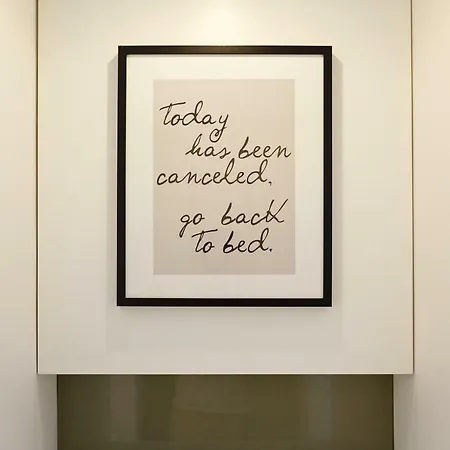 Today
has been
canceled.
go back
to bed.